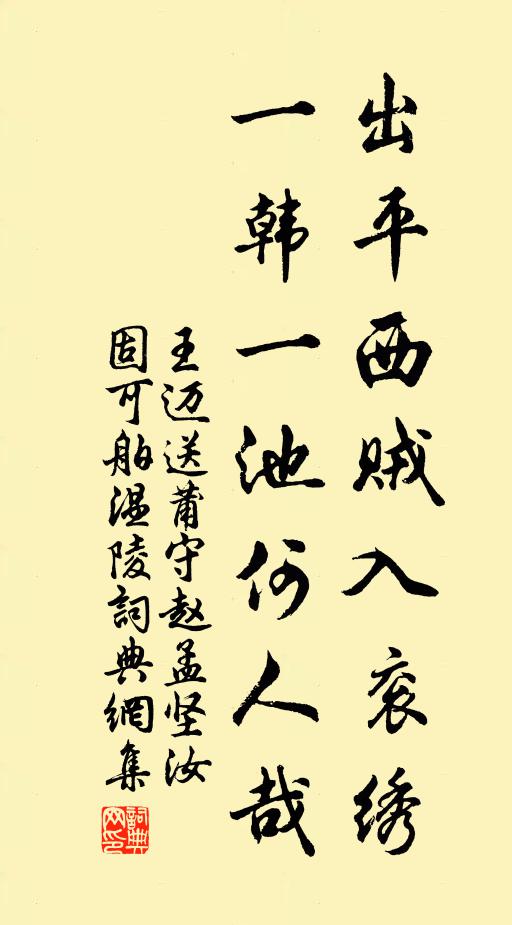 出平西贼入衮绣
一韩一池何人哉
王迈送莆守赵孟坚汝
固可舶温陵詞典網集
詞典網印